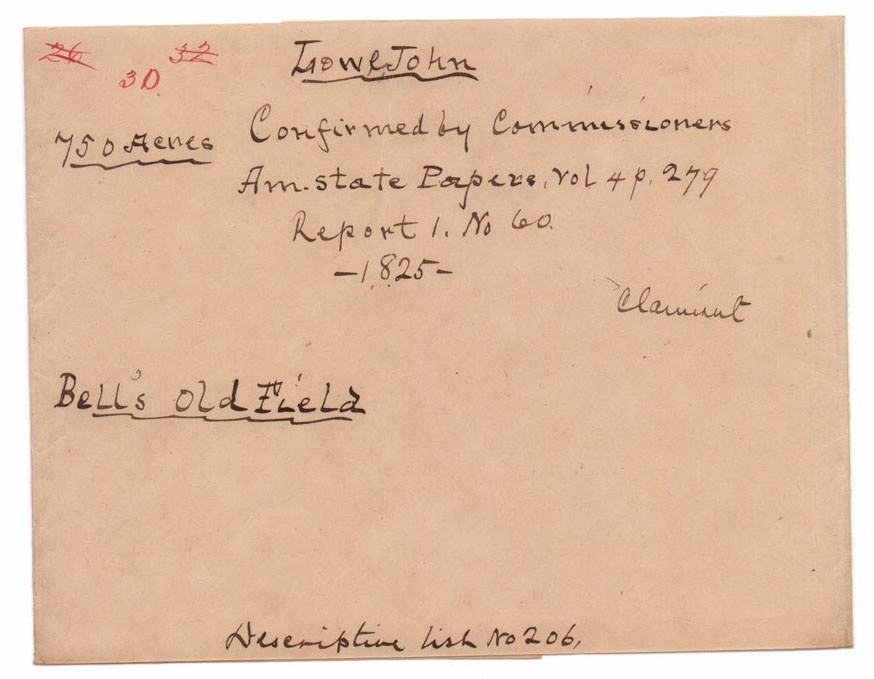 26 32
30
Lowe John
750 Acres
Confirmed by Commissioners
Am. state Papers, Vol 4 p. 279
Report 1. No 60.
-1825-
Claimant
Bell's Old Field
Descriptive list No 206.